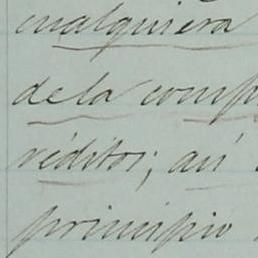 cualquiera
dela comp
réditos; así
principio